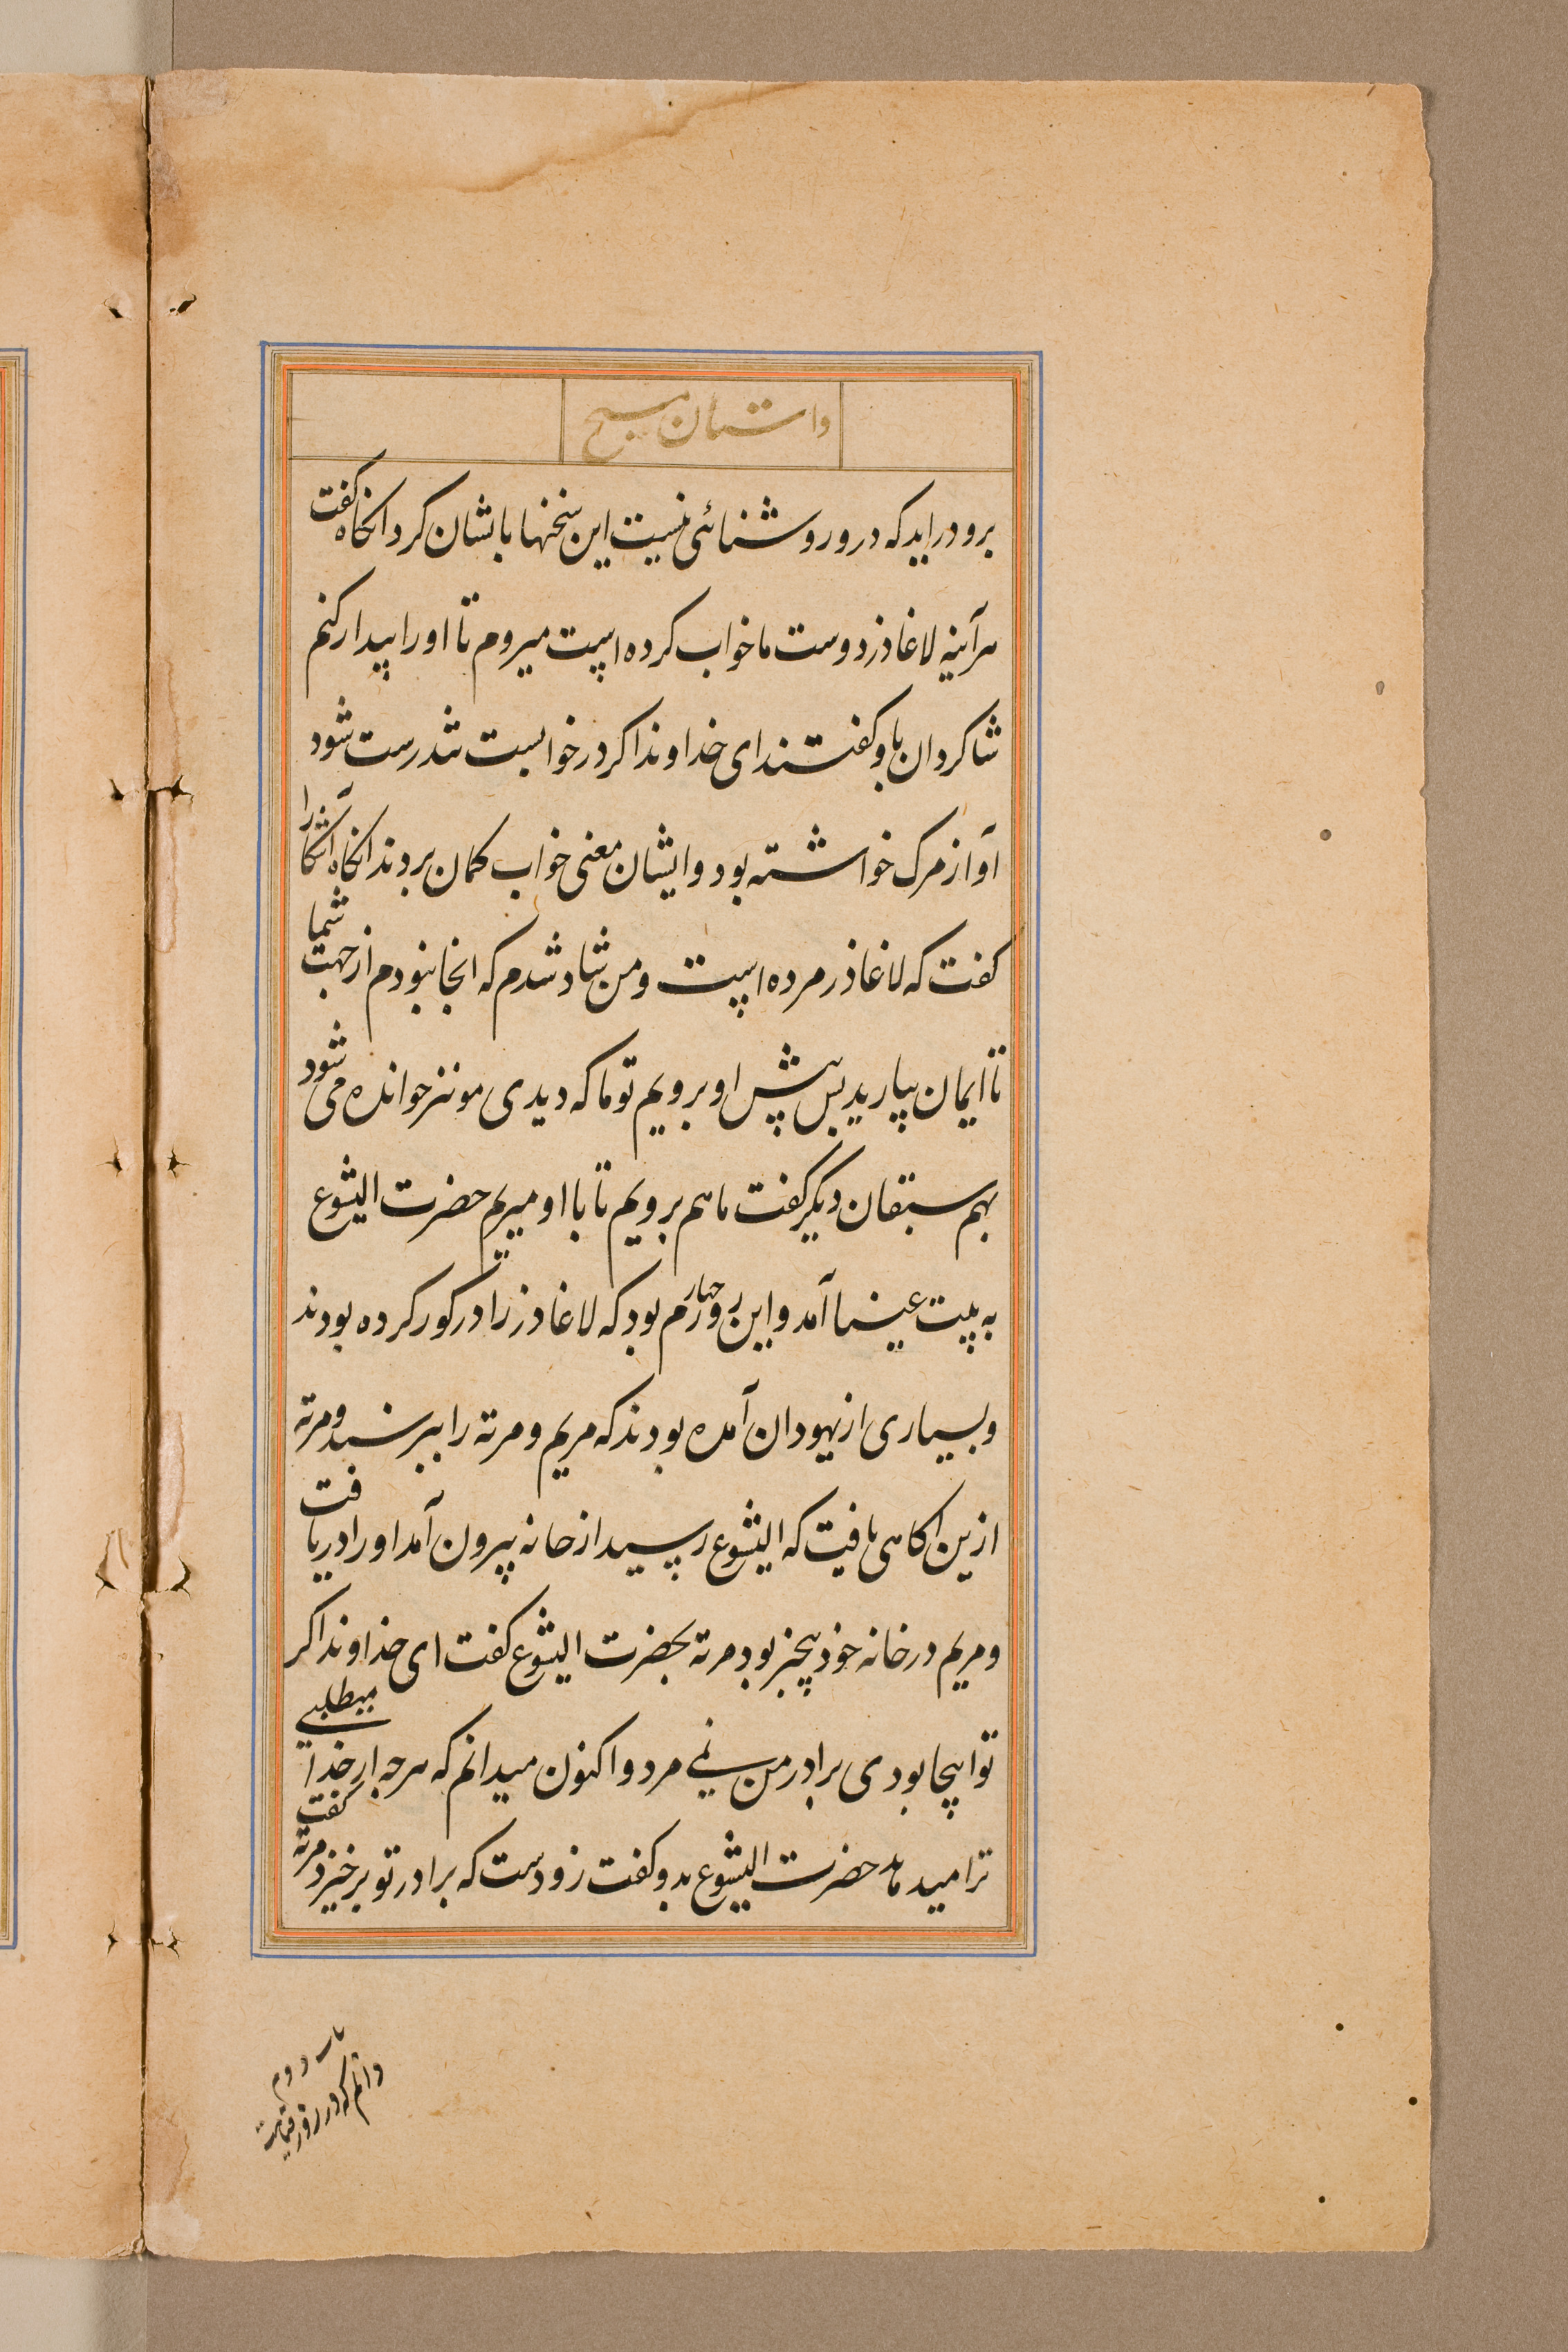 داستان مسیح
برو دراید که درو روشنائی نیست این سخنها باشان کرد انکاه کفت
هرآینه لاغاذر دوست ما خواب کرده است میروم تا اورا بیدار کنم
شاکردان باو کفتند ای خداوند اکر در خوابست تندرست شود
او از مرک خواسته بود و ایشان معنی خواب کمان بردند انکاه آشکارا
کفت که لاغاذر مرده است و من شاد شدم که انجا نبودم از جهت شما
تا ایمان بیارید بس پیش او برویم توما که دیدی موننز خوانده می شود
بهم سبقان دیکر کفت ما هم برویم تا با او میریم حضرت الیشوع
به بیت عینا آمد و این روز چهارم بود که لاغاذر را در کور کرده بودند
و بسیاری از یهودان آمده بودند که مریم و مرته را ببرسند و مرته
ازین اکاهی یافت که الیشوع رسید از خانه بیرون آمد اورا دریافت
و مریم در خانه خود بیخبر بود مرته بحضرت الیشوع کفت ای خداوند اکر
تو اینجا بودی برادر من نمی مرد و اکنون میدانم که هرچه از خدا میطلبی
ترا میدهد حضرت الیشوع بدو کفت زودست که برادر تو برخیزد مرته کفت
باب دوم
دانم که در روز قیامت